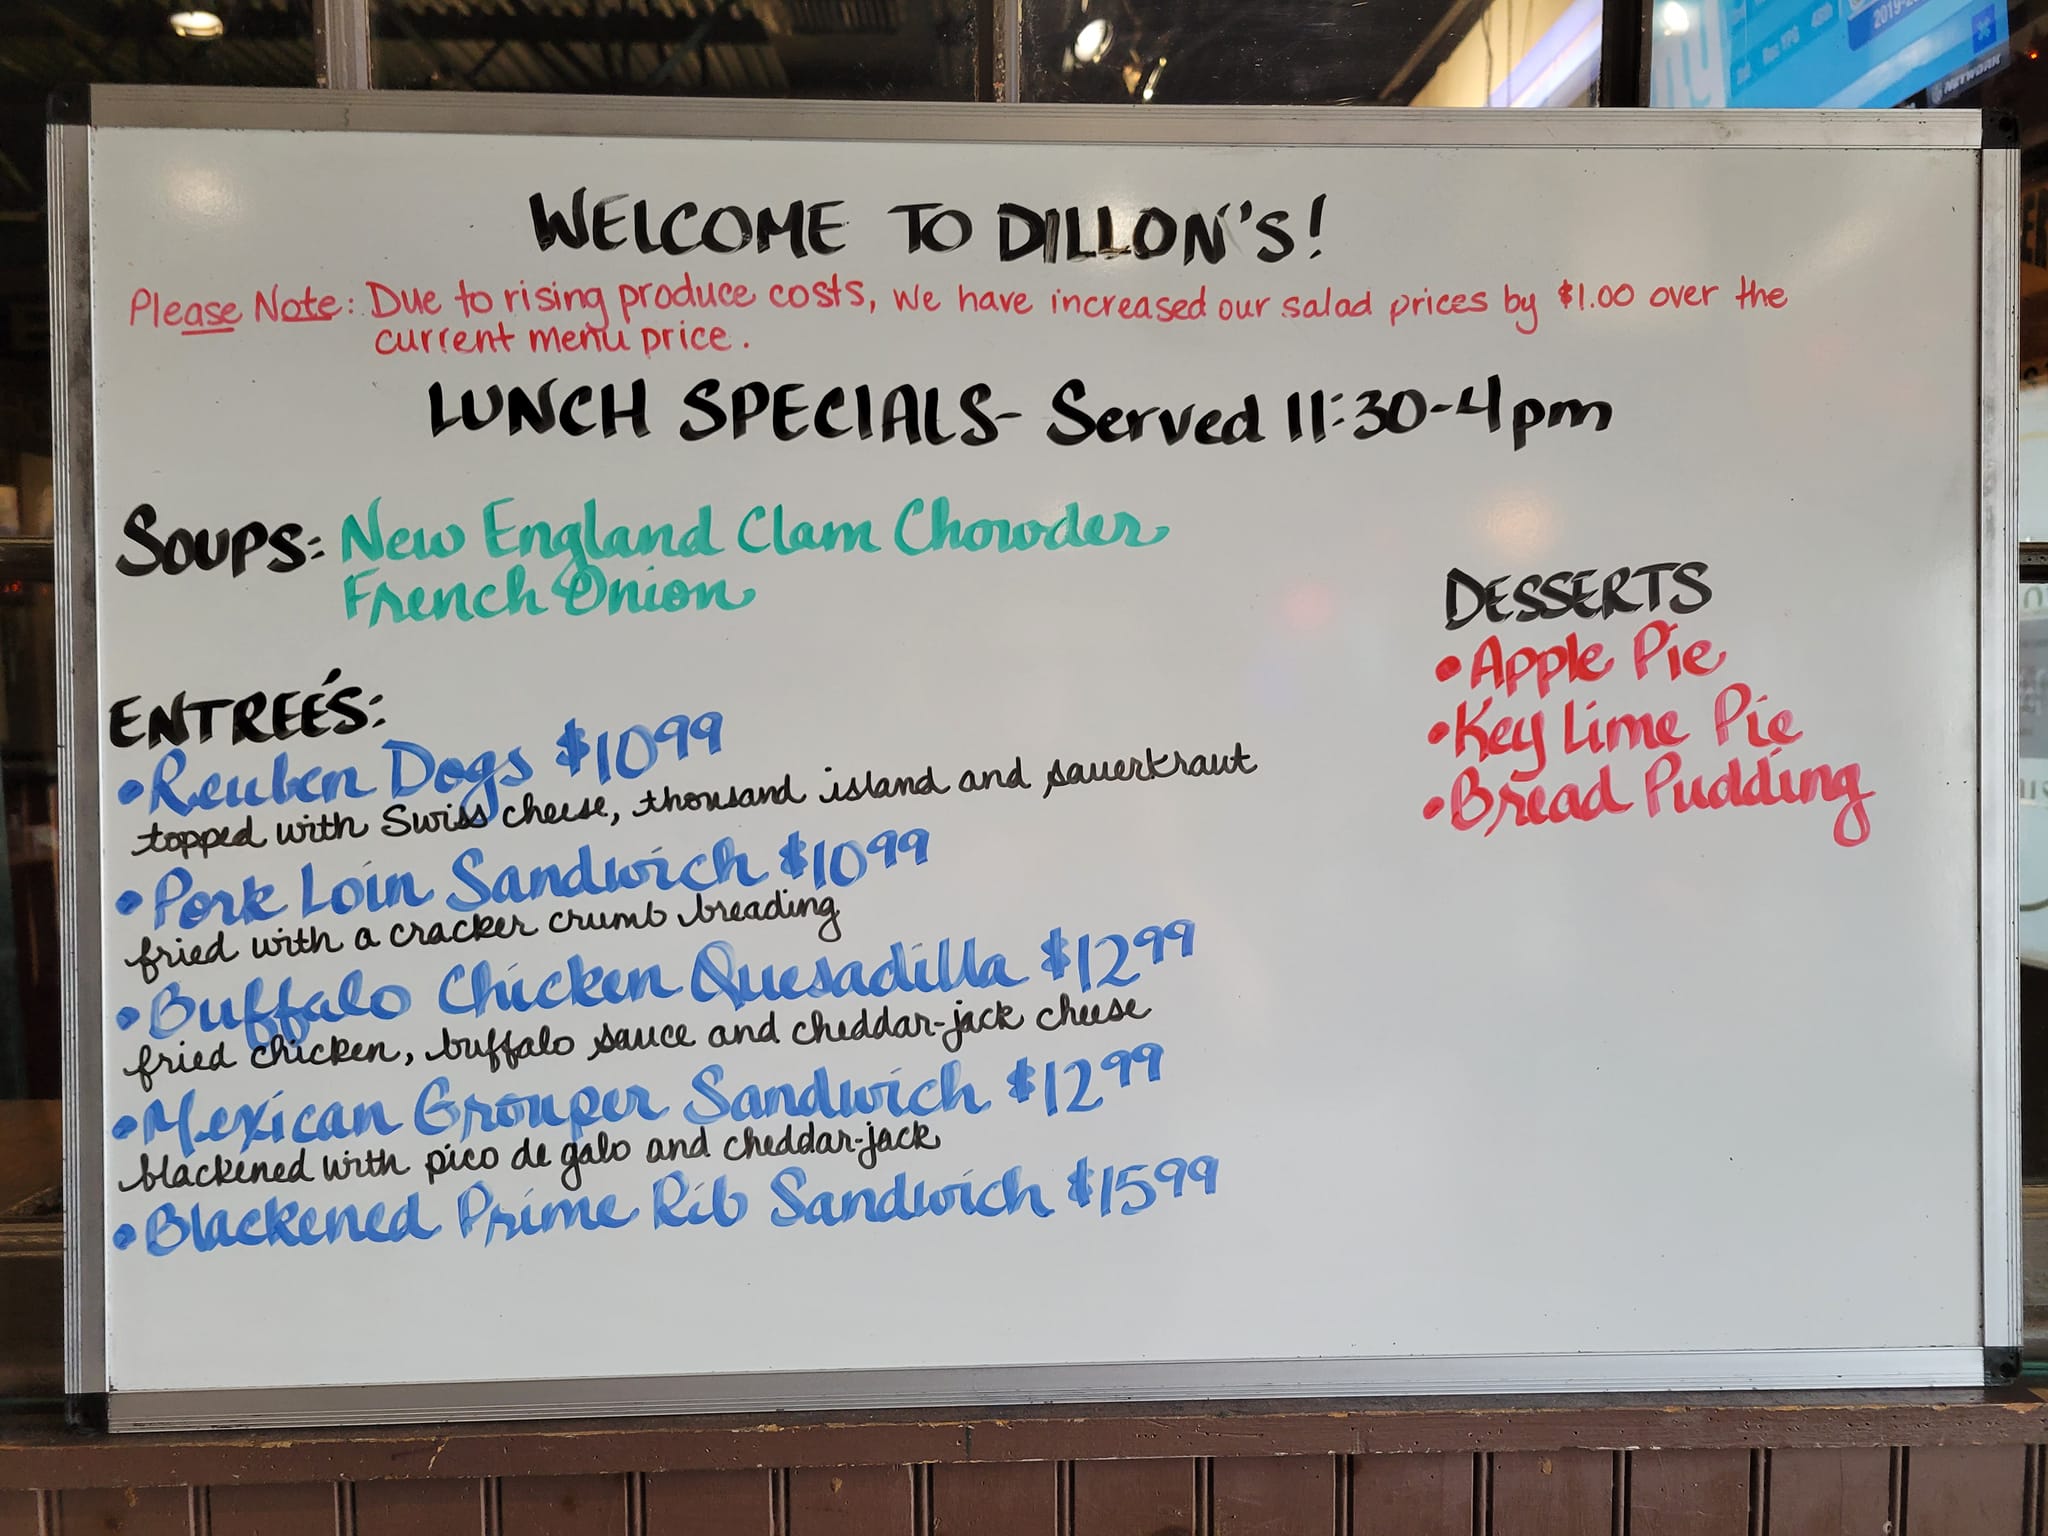 WELCOME TO DILLON'S!
Please Note: Due to rising produce costs, we have increased our salad prices by $1.00 over the
current menu price.
LUNCH SPECIALS- Served 11:30-4pm
SOUPS: New England Clam Chowder
French Onion
DESSERTS
•Apple Pie
•Key Lime Pie
•Bread Pudding
ENTREÉ'S:
•Reuben Dogs $10.99
topped with Swiss cheese, thousand island and sauerkraut
•Pork Loin Sandwich $10.99
fried with a cracker crumb breading
•Buffalo Chicken Quesadilla $12.99
fried chicken, buffalo sauce and cheddar-jack cheese
•Mexican Grouper Sandwich $12.99
blackened with pico de galo and cheddar-jack
•Blackened Prime Rib Sandwich $15.99